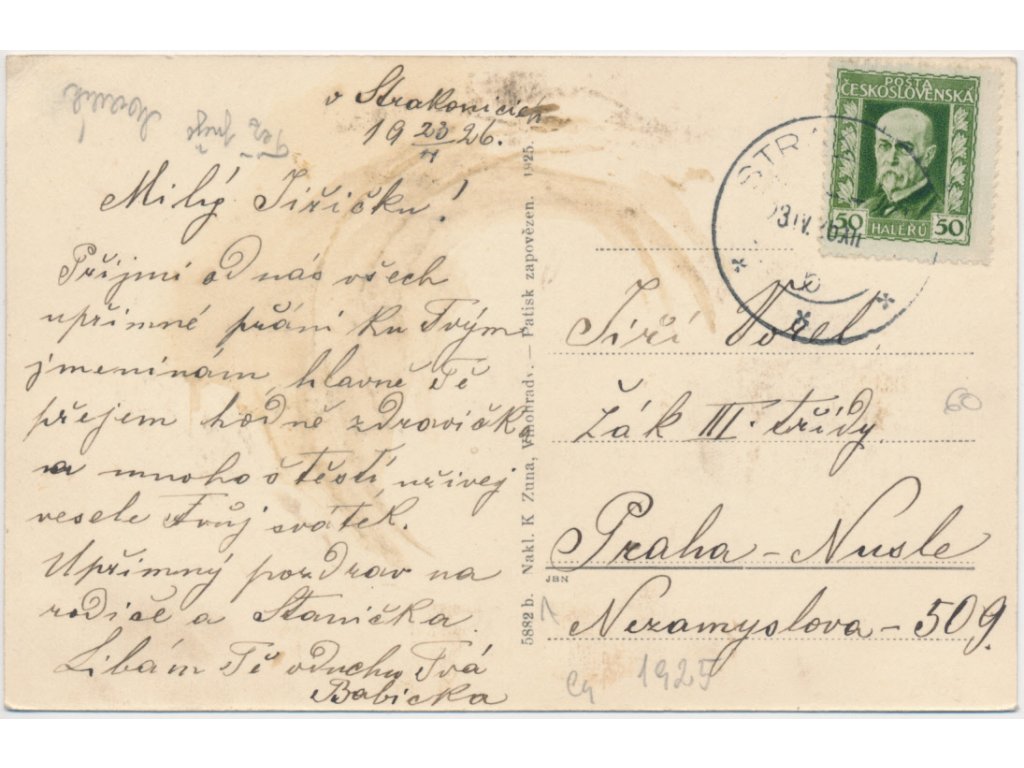 v Strakonicích
19 23/4 26.
Milý Jiříčku!
Příjmi od nás všech
upřimné přáni ku Tvým
jmeninám, hlavně Tě
přejem hodně zdravíčka
a mnoho štěstí uživej
vesele Tvůj svátek.
Upřimný pozdrav na
rodiče a Staníčka.
Libám Tě v duchu Tvá
Babička
5882 b. Nakl. K Zuna, Vinohrady. — Patisk zapovězen. 1925.
POŠTA
ČESKOSLOVENSKÁ
50 HALÉŘŮ 50
STRA
23.IV.26.XII
Jiří Vorel,
žák III. třídy.
Praha – Nusle
JBN
Nezamyslova – 509.
60
1925